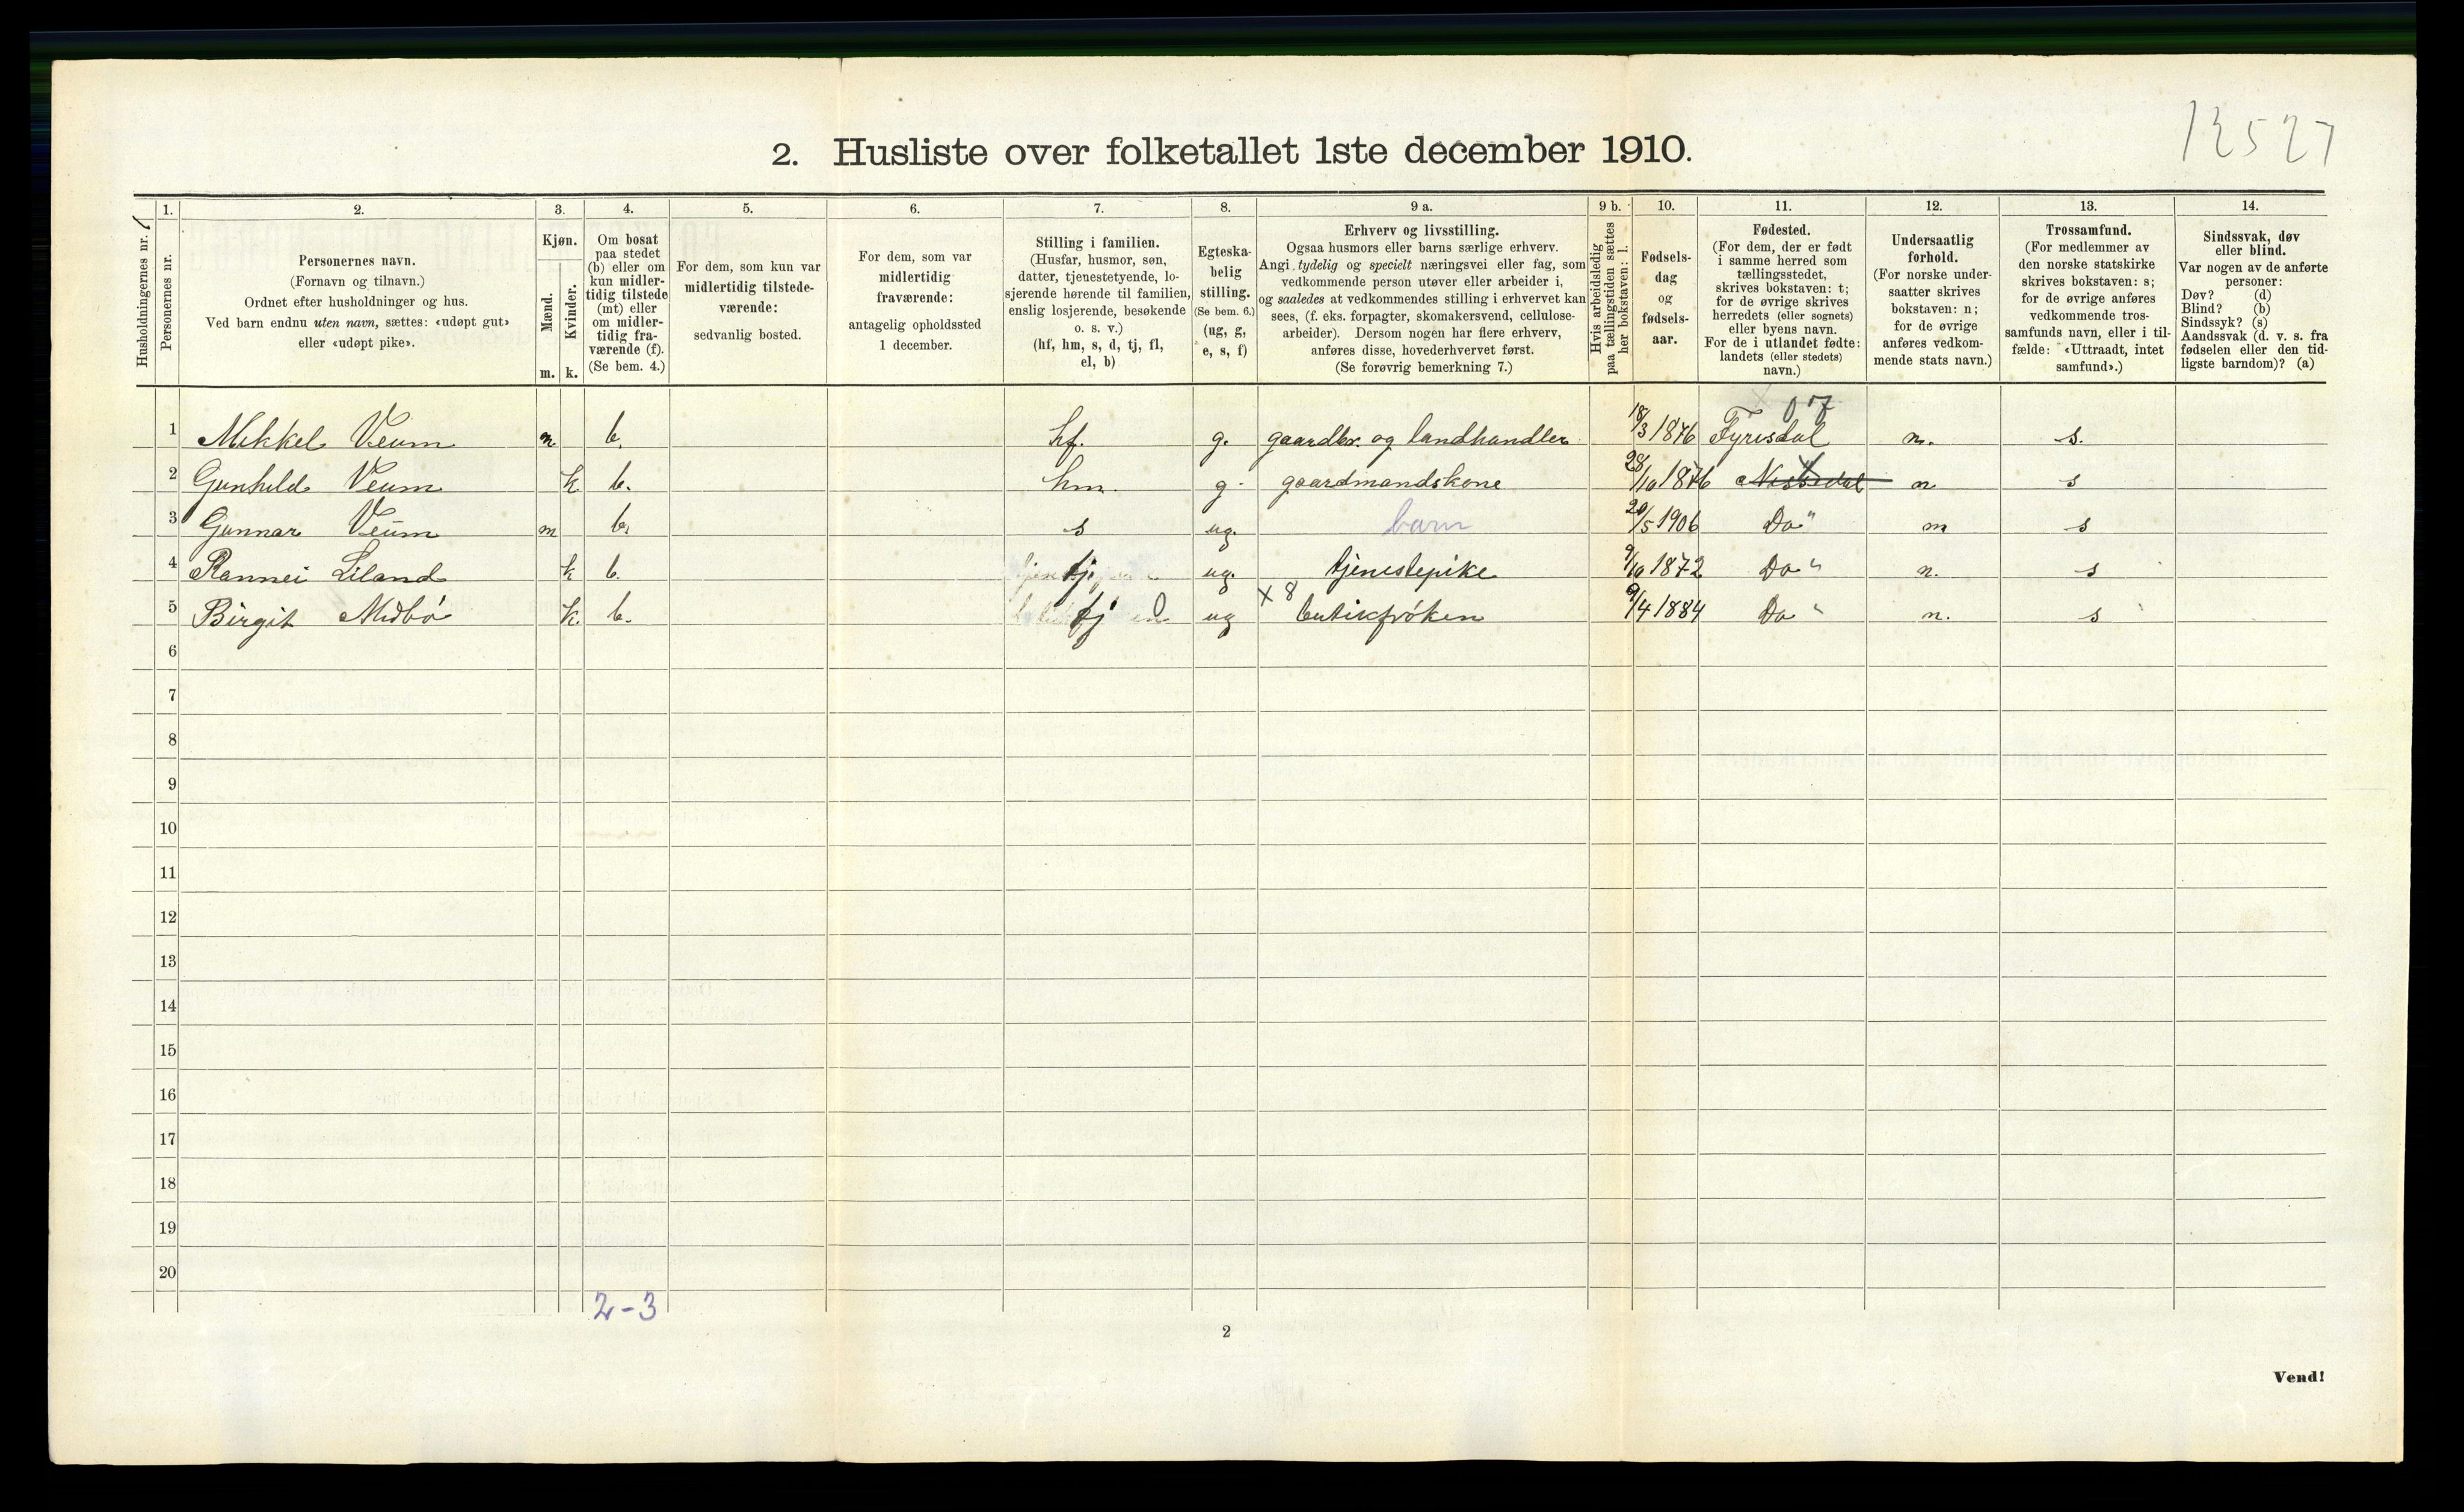 12527
2. Husliste over folketallet 1ste december 1910.
Husholdningernes nr. 1
1.
Personernes nr.
2.
Personernes navn.
(Fornavn og tilnavn.)
Ordnet efter husholdninger og hus.
Ved barn endnu uten navn, sættes: «udøpt gut»
eller «udøpt pike».
3.
Kjøn.
Mænd.
Kvinder.
m. k.
4.
Om bosat
paa stedet
(b) eller om
kun midler-
tidig tilstede
(mt) eller
om midler-
tidig fra-
værende (f).
(Se bem. 4.)
5.
For dem, som kun var
midlertidig tilstede-
værende:
sedvanlig bosted.
6.
For dem, som var
midlertidig
fraværende:
antagelig opholdssted
1 december.
7.
Stilling i familien.
(Husfar, husmor, søn,
datter, tjenestetyende, lo-
sjerende hørende til familien,
enslig losjerende, besøkende
o. s. v.)
(hf, hm, s, d, tj, fl,
el, b)
8.
Egteska-
belig
stilling.
(Se bem. 6.)
(ug, g,
e, s, f)
9 a.
Erhverv og livsstilling.
Ogsaa husmors eller barns særlige erhverv.
Angi tydelig og specielt næringsvei eller fag, som
vedkommende person utøver eller arbeider i,
og saaledes at vedkommendes stilling i erhvervet kan
sees, (f. eks. forpagter, skomakersvend, cellulose-
arbeider). Dersom nogen har flere erhverv,
anføres disse, hovederhvervet først.
(Se forøvrig bemerkning 7.)
9 b.
Hvis arbeidsledig
paa tællingstiden sættes
her bokstaven: l.
10.
Fødsels-
dag
og
fødsels-
aar.
11.
Fødested.
(For dem, der er født
i samme herred som
tællingsstedet,
skrives bokstaven: t;
for de øvrige skrives
herredets (eller sognets)
eller byens navn.
For de i utlandet fødte:
landets (eller stedets)
navn.)
12.
Undersaatlig
forhold.
(For norske under-
saatter skrives
bokstaven: n;
for de øvrige
anføres vedkom-
mende stats navn.)
13.
Trossamfund.
(For medlemmer av
den norske statskirke
skrives bokstaven: s;
for de øvrige anføres
vedkommende tros-
samfunds navn, eller i til-
fælde: «Uttraadt, intet
samfund».)
14.
Sindssvak, døv
eller blind.
Var nogen av de anførte
personer:
Døv? (d)
Blind? (b)
Sindssyk? (s)
Aandssvak (d. v. s. fra
fødselen eller den tid-
ligste barndom)? (a)
1 Mikkel Veum m b. hf. g. gaardbr. og landhandler 18/3 1876 Fyrisdal n. s.
2 Gunhild Veum k b. hm. g. gaardmandskone 28/10 1876 Nissedal n s
3 Gunnar Veum m b. s ug. barn 20/5 1906 Do" n s
4 Rannei Liland k b. tj ug. tjenestepike 9/10 1872 Do" n. s
5 Birgit Midbö k. b. tj ug x 8 butikfröken 9/4 1884 Do" n. s
6
7
8
9
10
11
12
13
14
15
16
17
18
19
20
2-3
2
Vend!